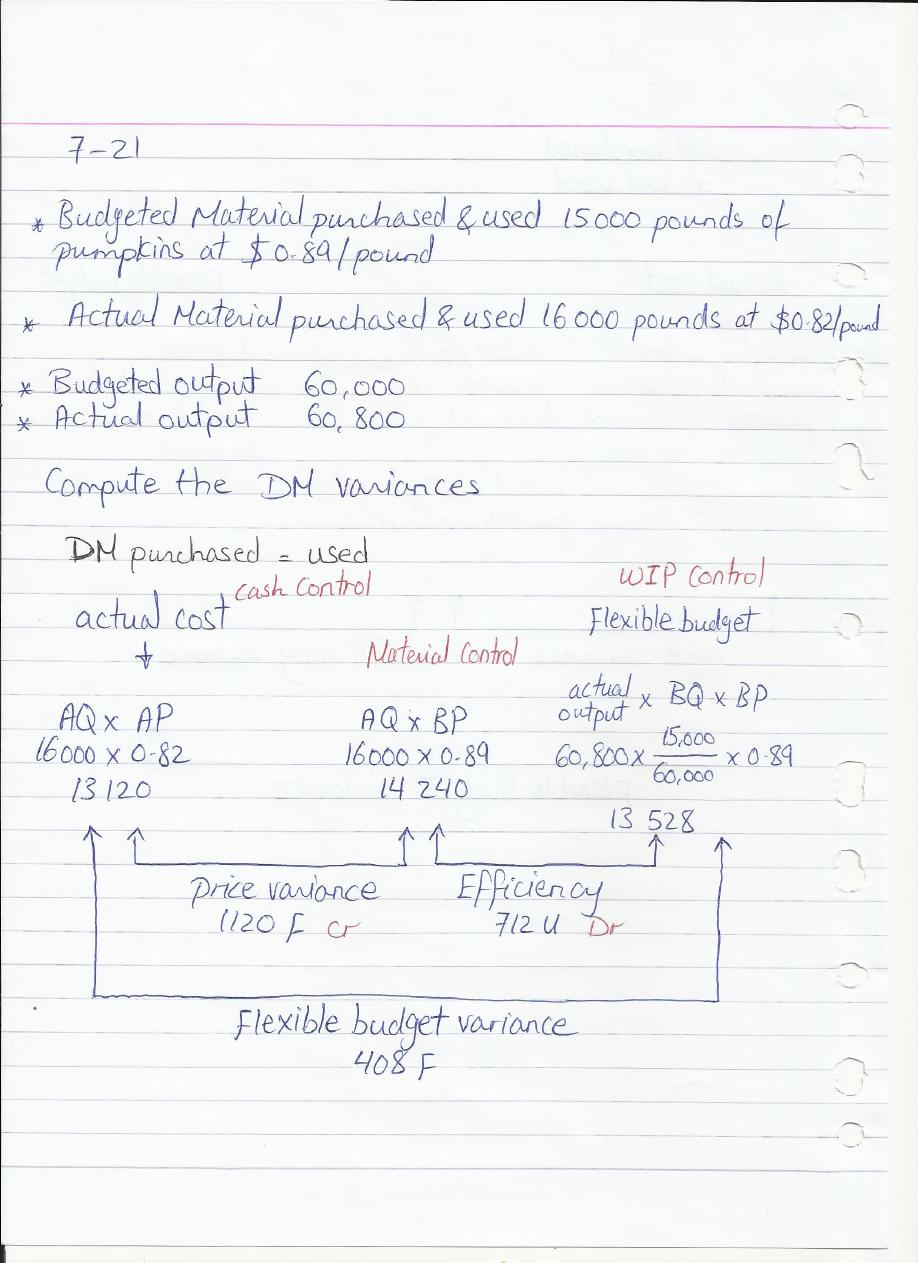 7-21
* Budgeted Material purchased & used 15000 pounds of
pumpkins at $0.89/pound
* Actual Material purchased & used 16000 pounds at $0.82/pound
* Budgeted output 60,000
* Actual output 60,800
Compute the DM variances
DM purchased = used
cash Control
WIP Control
actual cost
Flexible budget
Material Control
actual output × BQ × BP
AQ × AP
AQ × BP
16000 × 0.82
16000 × 0.89
60,800 × 15,000/60,000 × 0.89
13120
14 240
13 528
Price variance
Efficiency
1120 F Cr
712 U Dr
Flexible budget variance
408 F